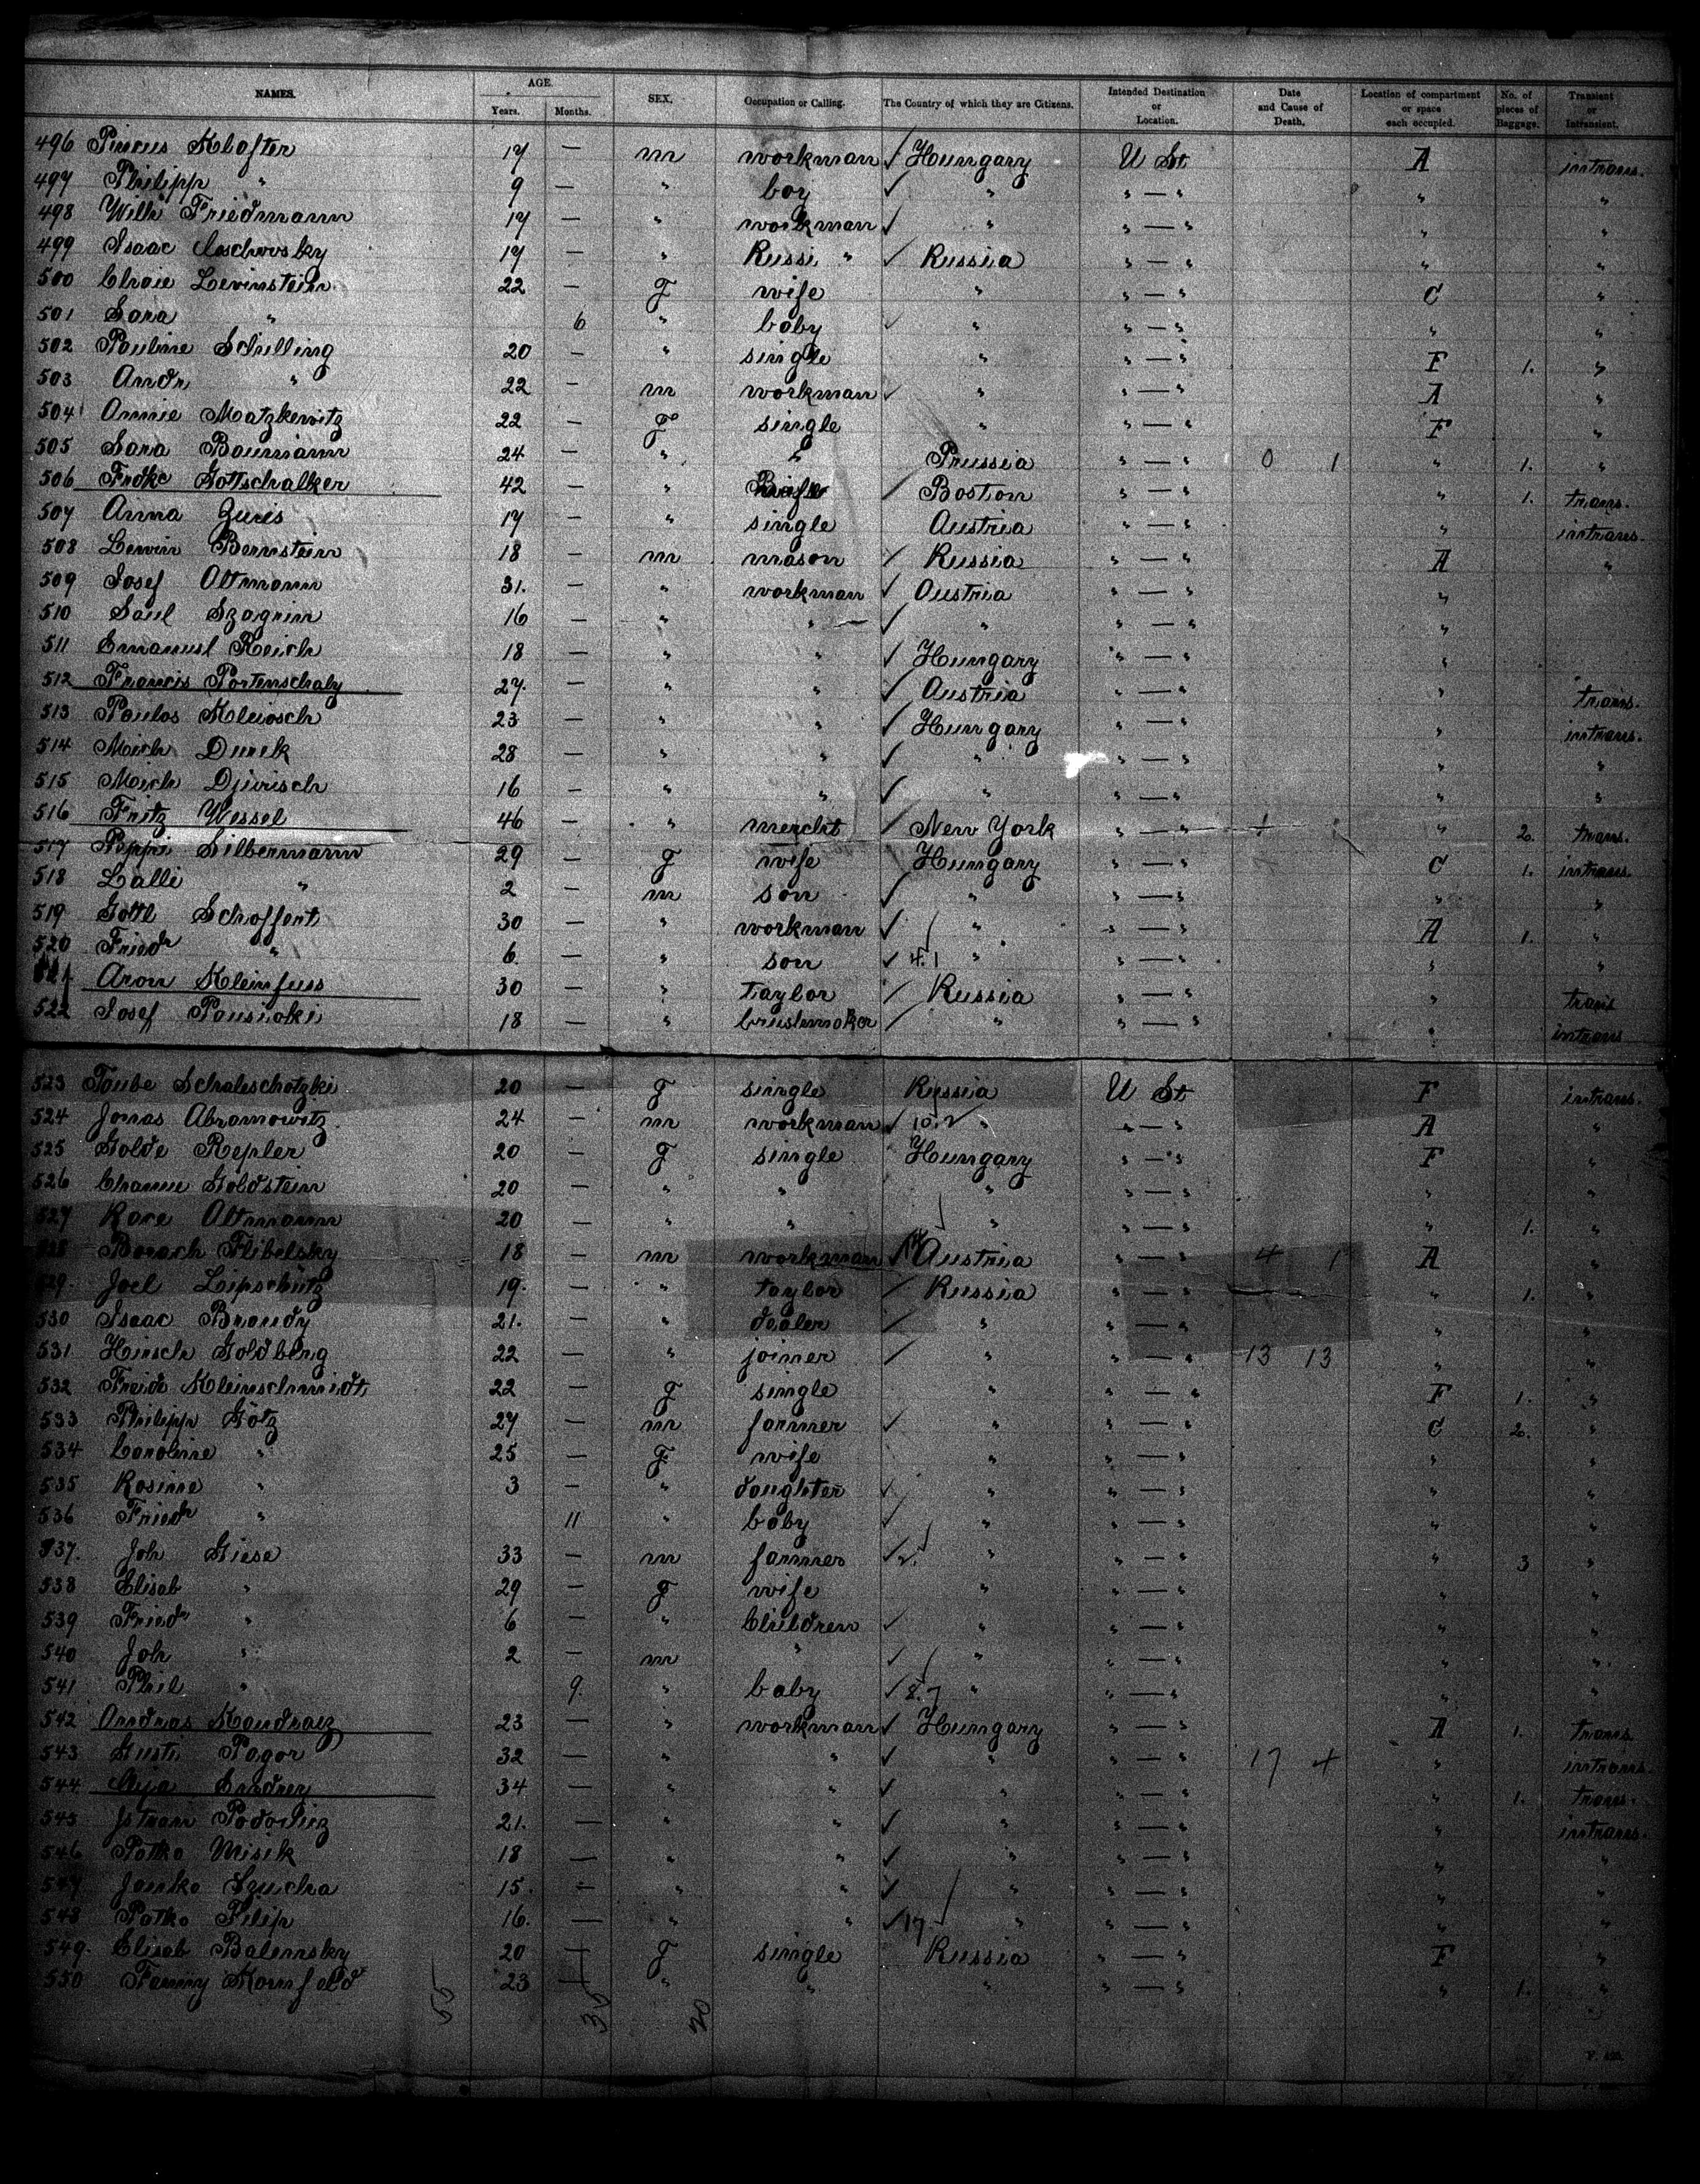 NAMES. AGE. Years. Months. SEX. Occupation or Calling. The Country of which they are Citizens. Intended Destination or Location. Date and Cause of Death. Location of compartment or space each occupied. No. of pieces of Baggage. Transient or Intransient.
496 Pincus Klafter 17 — m workman ✓ Hungary U St. A intrans.
497 Philipp " 9 — " boy ✓ " " — " " "
498 Wilh Friedmann 17 — " workman ✓ " " — " " "
499 Isaac 17 — " Russi " ✓ Russia " — " " "
500 Chaie Levinstein 22 — F wife " " — " C "
501 Sara " 6 " baby ✓ " " — " " "
502 Pauline Schilling 20 — " single " " — " F 1. "
503 Andr " 22 — m workman ✓ " " — " A "
504 Annie Matzkewitz 22 — F single " " — " F "
505 Sara Baumann 24 — " " Prussia " — " 0 1 " 1. "
506 Fredke Gottschalker 42 — " Boston " — " " 1. trans.
507 Anna 17 — " single Austria " — " " intrans.
508 Lewin Bernstein 18 — m mason ✓ Russia " — " A "
509 Josef Altmann 31. — " workman ✓ Austria " — " "
510 Saul Szagrin 16 — " " ✓ " " — " "
511 Emanuel Reich 18 — " " ✓ Hungary " — " "
512 Francis 27. — " " ✓ Austria " — " " trans.
513 Paulos 23 — " " ✓ Hungary " — " " intrans.
514 Mich Durek 28 — " " ✓ " " — " " "
515 Mich 16 — " " ✓ " " — " " "
516 Fritz Wessel 46 — " mercht ✓ New York " — " " 2. trans.
517 Peppi Silbermann 29 — F wife Hungary " — " C 1. intrans.
518 Lalli " 2 — m son ✓ " " — " " "
519 Gottl Schoffert 30 — " workman ✓ " " — " A 1. "
520 Friedr " 6. — " son ✓ 4.1 " " — " " "
521 Aron Kleinfuss 30 — " taylor ✓ Russia " — " " trans
522 Josef 18 — " ✓ " " — " " intrans
523 Taube Schaleschotzki 20 — F single Russia U St F intrans.
524 Jonas Abramowitz 24 — m workman ✓ 10.2 " " — " A "
525 Golde Repler 20 — F single Hungary " — " F "
526 Channe Goldstein 20 — " " " " — " " "
527 Kare Altmann 20 — " " " " — " " 1. "
528 Borach Flibelsky 18 — m workman ✓ Austria " — " 4 1 A "
529. Joel Lipschütz 19. — " taylor ✓ Russia " — " " 1. "
530 Isaac Braudy 21. — " dealer ✓ " " — " " "
531 Hirsch Goldberg 22 — " joiner ✓ " " — " 13 13 " "
532 Freide Kleinschmidt 22 — F single " " — " F 1. "
533 Philipp Götz 27 — m farmer ✓ " " — " C 2. "
534 Caroline " 25 — F wife " " — " " "
535 Rosine " 3 — " daughter ✓ " " — " " "
536 Friedr " 11 " baby ✓ " " — " " "
537. Joh Giese 33 — m farmer ✓ 2. " " — " " 3 "
538 Elisab " 29 — F wife " " — " " "
539 Friedr " 6 — " Children ✓ " " — " " "
540 Joh " 2 — m " ✓ " " — " " "
541 Phil " 9. " baby ✓ 8.7 " " — " " "
542 Andras 23 — " workman ✓ Hungary " — " A 1. trans.
543 Gusti Pagor 32 — " " ✓ " " — " 17 4 " intrans.
544. 34 — " " ✓ " " — " " 1. trans.
545 21. — " " ✓ " " — " " intrans.
546 Patko Misik 18 — " " ✓ " " — " " "
547 Janko Szucha 15. — " " ✓ " " — " " "
548 Patko Filip 16. — " " ✓ 17 " " — " " "
549. Elisab Balensky 20 — F single Russia " — " F "
550 Fanny Kornfeld 23 — " " " " — " " 1. "
55 35 20